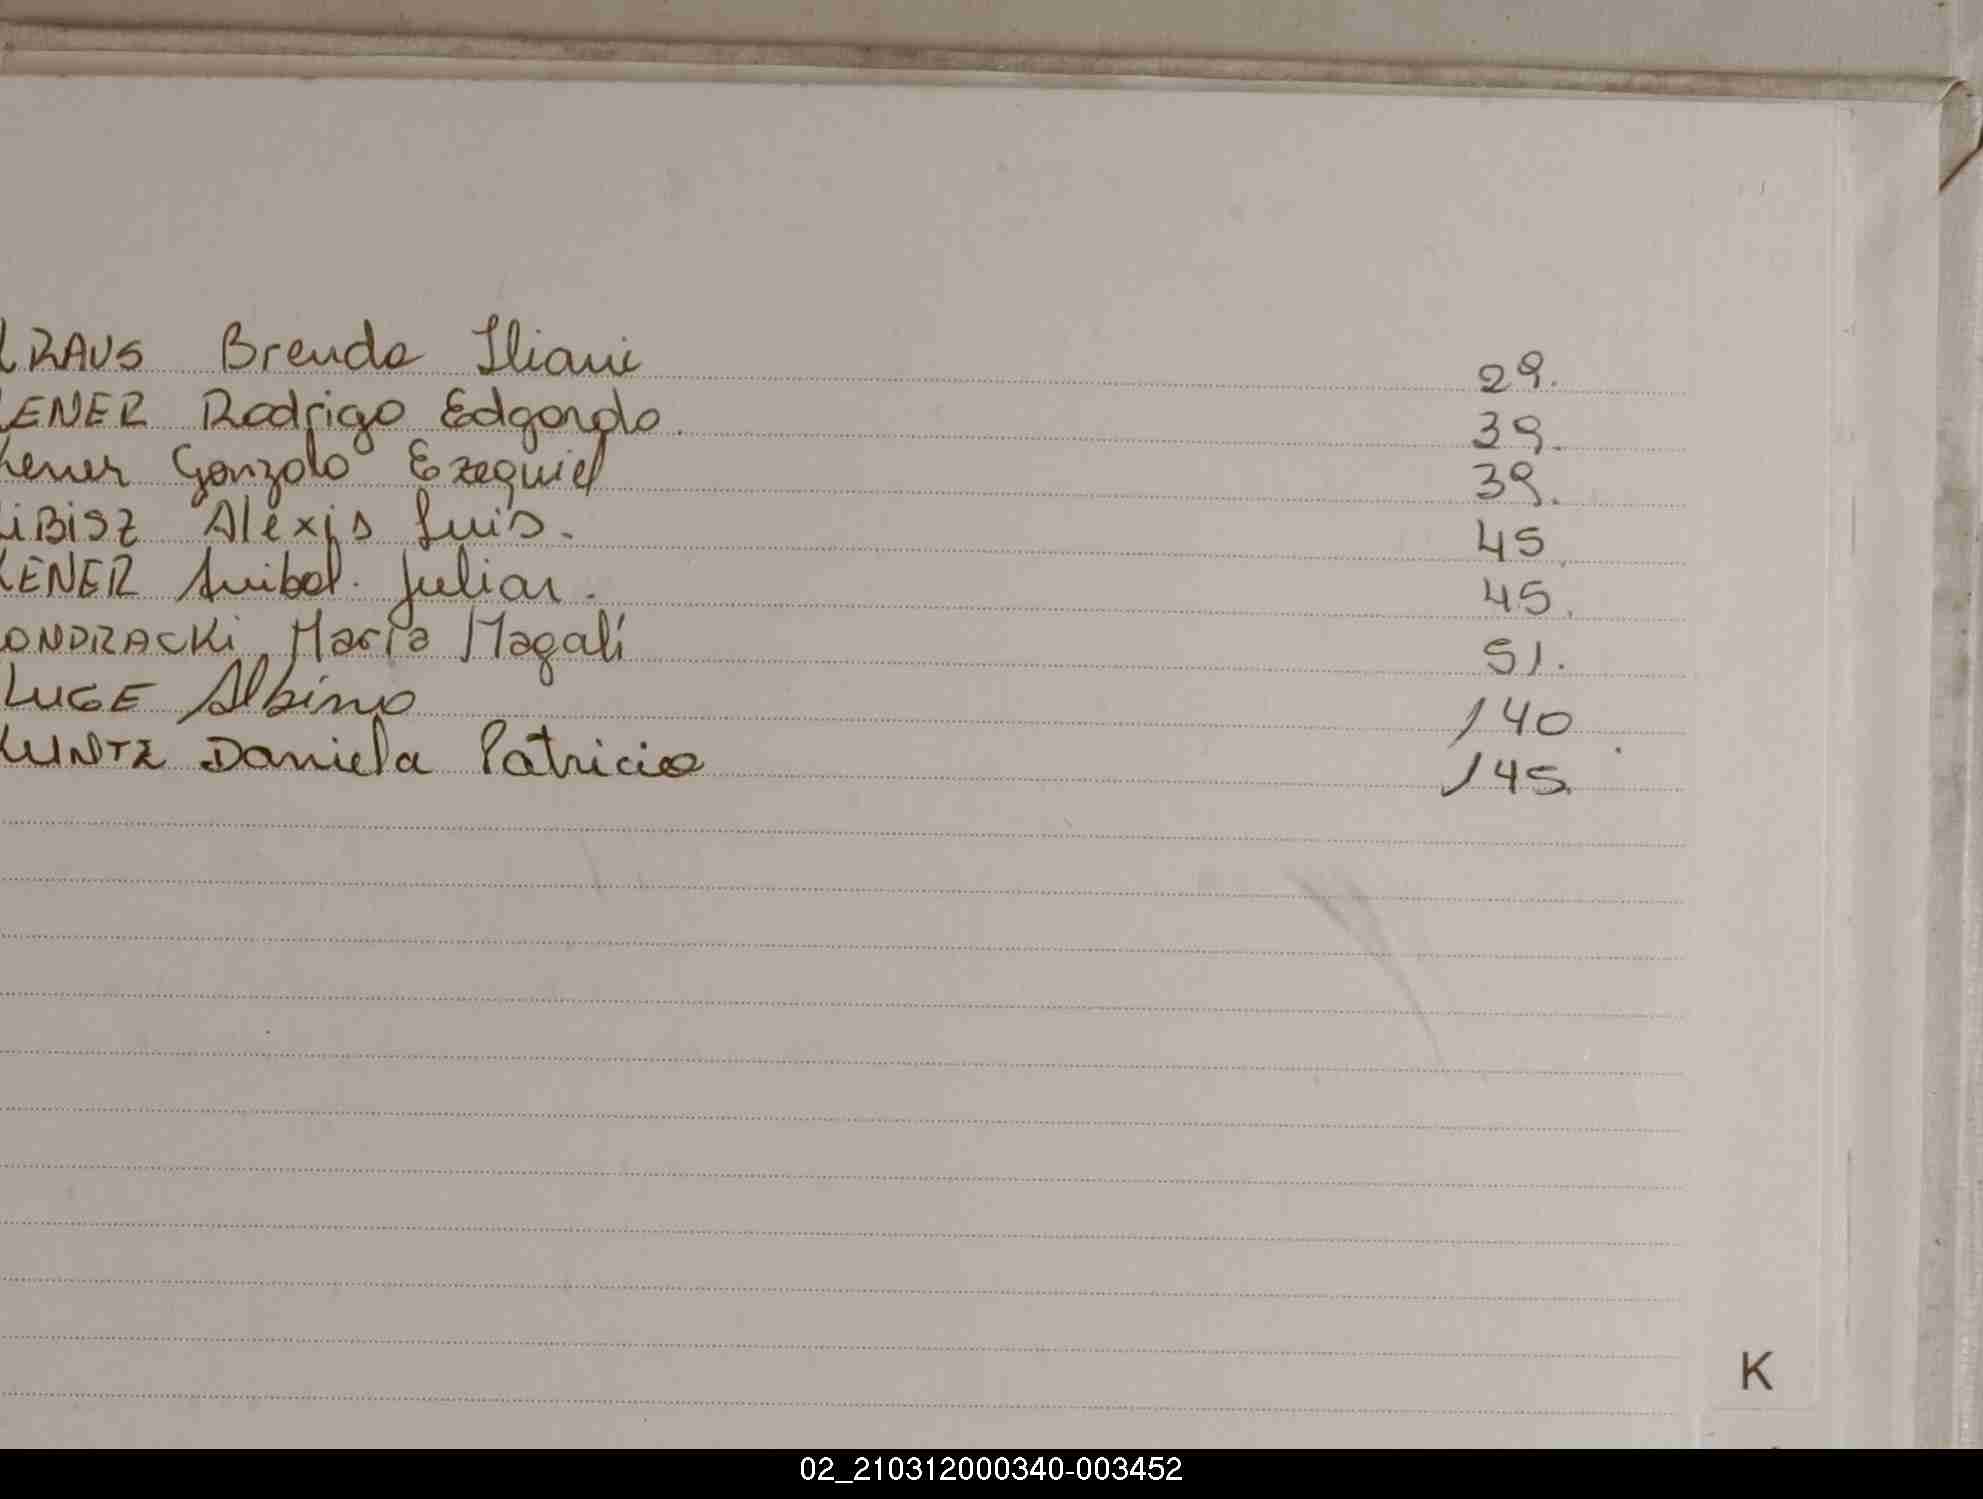 KRAUS Brenda Iliani 29.
KENER Rodrigo Edgardo. 39.
Kener Gonzalo Ezequiel 39.
KiBiSZ Alexis Luis. 45
KENER Anibal. Julian. 45.
ONDRACKi Maria Magalí 51.
LUGE Albino 140
KUNTZ Daniela Patricia 145.
K
02_210312000340-003452